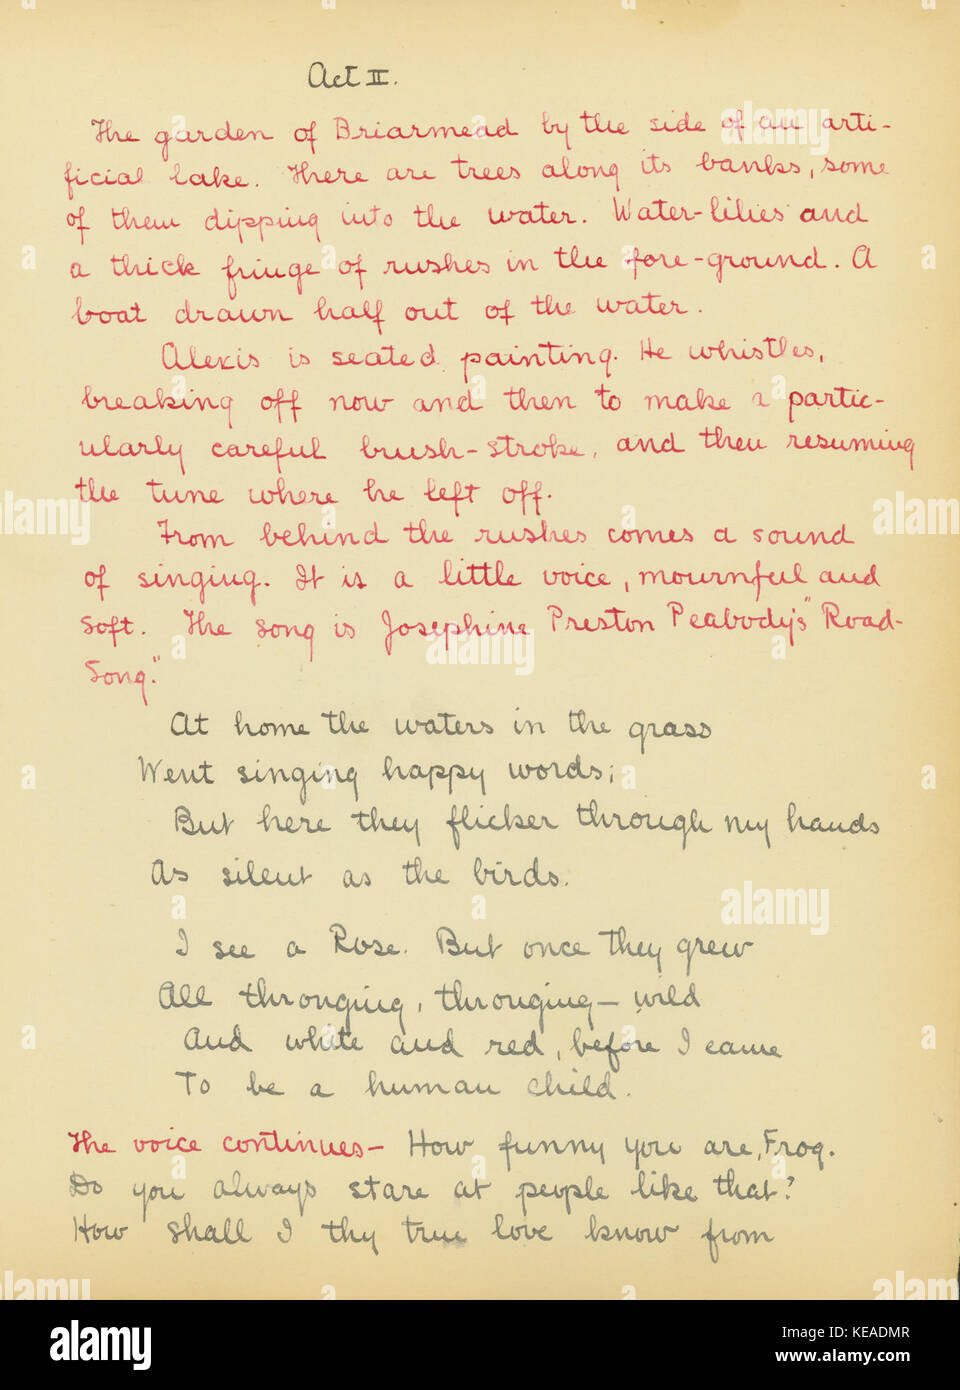 Act II.
The garden of Briarmead by the side of an arti-
ficial lake. There are trees along its banks, some
of them dipping into the water. Water-lilies and
a thick fringe of rushes in the fore-ground. A
boat drawn half out of the water.
Alexis is seated painting. He whistles,
breaking off now and then to make a partic-
ularly careful brush-stroke, and then resuming
the tune where he left off.
From behind the rushes comes a sound
of singing. It is a little voice, mournful and
soft. The song is Josephine Preston Peabody's "Road-
Song."
At home the waters in the grass
Went singing happy words;
But here they flicker through my hands
As silent as the birds.
I see a Rose. But once they grew
All thronging, thronging — wild
And white and red, before I came
To be a human child.
The voice continues — How funny you are, Frog.
Do you always stare at people like that?
How shall I thy true love know from
alamy
Image ID: KEADMR
www.alamy.com